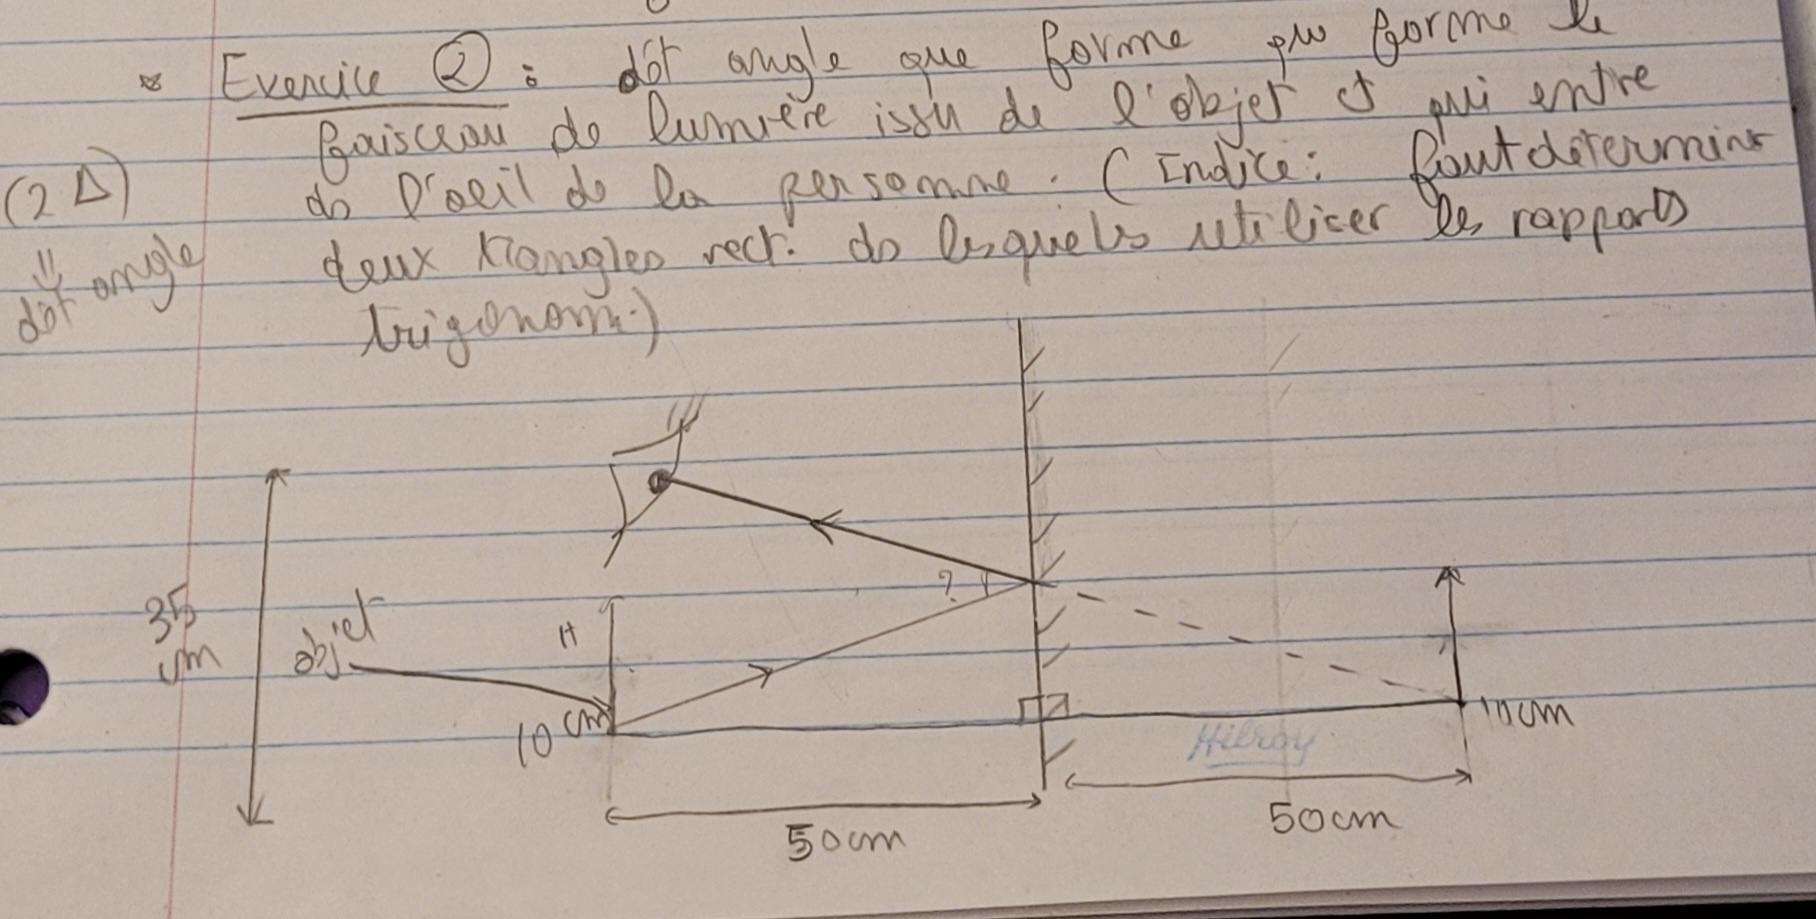 * Exercice ② : dét angle que forme que forme le
faisceau de lumière issu de l'objet et qui entre
ds l'oeil de la personne. (Indice: faut déterminer
deux triangles rect. ds lesquels utiliser les rapports
trigonom.)
(2 Δ)
⇓
dét angle
35
cm
objet
H
10 cm
?
10cm
Hilroy
50cm
50cm